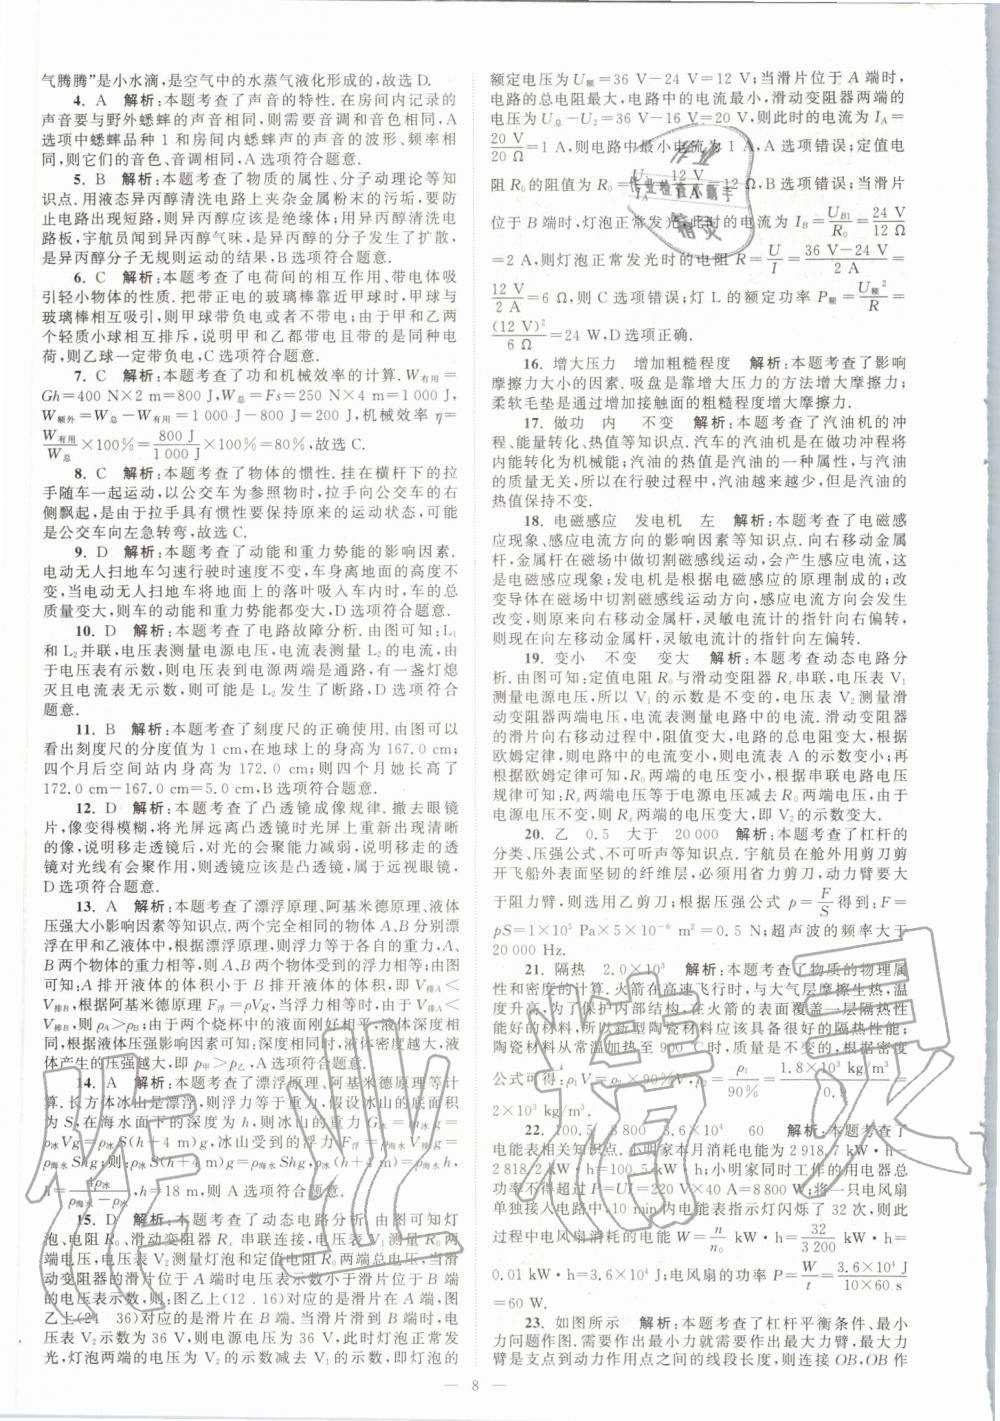 气腾腾”是小水滴,是空气中的水蒸气液化形成的,故选 D.
4. A 解析:本题考查了声音的特性. 在房间内记录的
声音要与野外蟋蟀的声音相同,则需要音调和音色相同,A
选项中蟋蟀品种 1 和房间内蟋蟀声的声音的波形、频率相
同,则它们的音色、音调相同,A 选项符合题意.
5. B 解析:本题考查了物质的属性、分子动理论等知
识点. 用液态异丙醇清洗电路上夹杂金属粉末的污垢,要防
止电路出现短路,则异丙醇应该是绝缘体. 用异丙醇清洗电
路板,宇航员闻到异丙醇气味,是异丙醇的分子发生了扩散,
是异丙醇分子无规则运动的结果,B 选项符合题意.
6. C 解析:本题考查了电荷间的相互作用、带电体吸
引轻小物体的性质. 把带正电的玻璃棒靠近甲球时,甲球与
玻璃棒相互吸引,则甲球带负电或者不带电;由于甲和乙两
个轻质小球相互排斥,说明甲和乙两个球都带电而且带同种电
荷,则乙球一定带负电,C 选项符合题意.
7. C 解析:本题考查了功和机械效率的计算. W有用=
Gh=400 N×2 m=800 J,W总=Fs=250 N×4 m=1 000 J,
W额外=W总-W有用=1 000 J-800 J=200 J,机械效率 η=
W有用/W总×100%=800 J/1 000 J×100%=80%,故选 C.
8. C 解析:本题考查了物体的惯性. 挂在横杆下的拉
手随车一起运动,以公交车为参照物时,拉手向公交车的右
侧飘起,是由于拉手具有惯性要保持原来的运动状态,可能
是公交车向左急转弯,故选 C.
9. D 解析:本题考查了动能和重力势能的影响因素.
电动无人扫地车匀速行驶时速度不变,车身离地面的高度不
变,当电动无人扫地车将地面上的落叶吸入收集箱时,车的总
质量变大,则车的动能和重力势能都变大,D 选项符合题意.
10. D 解析:本题考查了电路故障分析. 由图可知:L1
和 L2 并联,电压表测量电源电压,电流表测量干路电流,由
于电压表有示数,则电压表到电源两端是通路,有一盏灯熄
灭且电流表无示数,则可能是 L2 发生了断路,D 选项符合
题意.
11. B 解析:本题考查了刻度尺的正确使用. 由图可以
看出刻度尺的分度值为 1 cm,在地球上的身高为 167.0 cm;
四个月后空间站内身高为 172.0 cm,则四个月她长高了
172.0 cm-167.0 cm=5.0 cm,B 选项符合题意.
12. D 解析:本题考查了凸透镜成像规律. 撤去眼镜
片,像变得模糊,将光屏远离凸透镜时光屏上重新出现清晰
的像,说明移走透镜后,对光的会聚能力减弱,说明移走的透
镜对光线有会聚作用,则透镜应该是凸透镜,属于远视眼镜,
D 选项符合题意.
13. A 解析:本题考查了漂浮原理、阿基米德原理、液体
压强大小影响因素等知识点. 两个完全相同的物体 A、B分别漂
浮在甲和乙液体中,根据漂浮原理,则浮力等于各自的重力,A、
B 两个物体的重力相等,则 A、B 两个物体受到的浮力相等;由图
可知:A 排开液体的体积小于 B 排开液体的体积,即 V排A<
V排B,根据阿基米德原理 F浮=ρVg,当浮力相等时,由于 V排A<
V排B,则 ρA>ρB;由于两个烧杯中的液面刚好相平,液体深度相
同,根据液体压强影响因素可知:深度相同时,液体密度越大,液
体产生的压强越大,即 p甲>p乙,A 选项符合题意.
14. A 解析:本题考查了漂浮原理、阿基米德原理等计
算. 长方体冰山是漂浮,则浮力等于重力,假设冰山的底面积
为 S,在海水面下的深度为 h,则冰山的重力 G冰=m冰g=
ρ冰Vg=ρ冰S(h+4 m)g,冰山受到的浮力 F浮=ρ海水V排g=
ρ海水Shg;则:ρ冰S(h+4 m)g=ρ海水Shg,ρ冰(h+4 m)=ρ海水h,
h=18 m,则 A 选项符合题意.
15. D 解析:本题考查了动态电路分析. 由图可知灯
泡、电阻 R0、滑动变阻器 R 串联连接,电压表 V1 测量电阻两
端电压,电压表 V2 测量灯泡和定值电阻 R0 两端总电压,当滑
动变阻器的滑片位于 A 端时电压表示数小于滑片位于 B 端
的电压表示数,则:图乙上(12 16)对应的是滑片在 A 端,图
乙上(24 36)对应的是滑片在 B 端. 当滑片滑到 B 端时,电
压表 V2 示数为 36 V,则电源电压为 36 V,此时灯泡正常发
光,灯泡两端的电压为 V2 示数减去 V1 示数,即灯泡的
额定电压为 U额=36 V-24 V=12 V;当滑片位于 A 端时,
电路的总电阻最大,电路中的电流最小,滑动变阻器两端的
电压为 U总-U2=36 V-16 V=20 V,则此时的电流为 IA=
20 V/20 Ω=1 A,则电路中最小电流为 1 A,A 选项错误;定值电
阻 R0 的阻值为 R0=U/IA=12 V/1 A=12 Ω,B 选项错误;当滑片
位于 B 端时,灯泡正常发光,此时的电流为 IB=UB1/R0=24 V/12 Ω
=2 A,则灯泡正常发光时的电阻 R=U/I=36 V-24 V/2 A=
12 V/2 A=6 Ω,则 C 选项错误;灯 L 的额定功率 P额=U额²/R=
(12 V)²/6 Ω=24 W,D 选项正确.
16. 增大压力 增加粗糙程度 解析:本题考查了影响
摩擦力大小的因素. 吸盘是靠增大压力的方法增大摩擦力;
柔软毛垫是通过增加接触面的粗糙程度增大摩擦力.
17. 做功 内 不变 变大 解析:本题考查了汽油机的冲
程、能量转化、热值等知识点. 汽车的汽油机在做功冲程中将
内能转化为机械能;汽油的热值是汽油的一种属性,与汽油
的质量无关,所以在行驶过程中,汽油越来越少,但是汽油的
热值保持不变.
18. 电磁感应 发电机 左 解析:本题考查了电磁感
应现象、感应电流方向的影响因素等知识点. 向右移动金属
杆,金属杆在磁场中做切割磁感线运动,会产生感应电流,
这是电磁感应现象;发电机是根据电磁感应的原理制成的;改
变导体在磁场中切割磁感线运动方向,感应电流方向会发生
改变,则原来向右移动金属杆,灵敏电流计的指针向右偏转,
则现在向左移动金属杆,灵敏电流计的指针向左偏转.
19. 变小 不变 变大 解析:本题考查动态电路分
析. 由图可知:定值电阻 R0 与滑动变阻器 Rx 串联,电压表 V1
测量电源电压,所以 V1 的示数是不变的,电压表 V2 测量滑
动变阻器两端电压,电流表测量电路中的电流. 滑动变阻器
的滑片向右移动过程中,阻值变大;电路的总电阻变大,根据
欧姆定律,则电路中的电流变小,则电流表 A 的示数变小;再
根据欧姆定律可知,R0 两端的电压变小,根据串联电路电压
规律可知:Rx 两端电压等于电源电压减去 R0 两端电压,则滑
动变阻器 Rx 两端的电压变大,即 V2 的示数变大.
20. 乙 0.5 大于 20 000 解析:本题考查了杠杆的
分类、压强公式、不可听声等知识点. 宇航员在舱外用剪刀剪
开飞船外表面坚韧的纤维层,必须用省力剪刀,动力臂要大
于阻力臂,则选用乙剪刀;根据压强公式 p=F/S 得到:F=
pS=1×10⁵ Pa×5×10⁻⁶ m²=0.5 N;超声波的频率大于
20 000 Hz.
21. 隔热 2.0×10³ 解析:本题考查了物质的物理属
性和密度的计算. 火箭在高速飞行时,与大气层摩擦生热,温
度升高,为了保护内部结构,在火箭的表面覆盖一层隔热性
能好的材料,所以新型陶瓷材料应该具备很好的隔热性能;
陶瓷材料从常温加热至 900 ℃时,质量是不变的,根据密度
公式可得:ρ1V=ρ2×90%V,ρ2=ρ1/90%=1.8×10³ kg/m³/0.9=
2×10³ kg/m³.
22. 100.5 8 800 3.6×10⁴ 60 解析:本题考查了
电能表相关知识点. 小明家本月消耗电能为 2 918.7 kW·h-
2 818.2 kW·h=100.5 kW·h;小明家同时工作的用电器总
功率为 P=UI=220 V×40 A=8 800 W;将一只电风扇
单独接入电路中,10 min 内电能表指示灯闪烁了 32 次,则此
过程中电风扇消耗的电能 W=n/n0 kW·h=32/3 200 kW·h=
0.01 kW·h=3.6×10⁴ J;电风扇的功率 P=W/t=3.6×10⁴ J/10×60 s
=60 W.
23. 如图所示 解析:本题考查了杠杆平衡条件、最小
力问题作图. 需要作出最小力就需要作出最大力臂,最大力
臂是支点到动力作用点之间的线段长度,则连接 OB,OB 作
— 8 —
作业
作业检查小助手
精灵
作业精灵